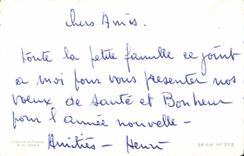 Chers Amis.
Toute la petite famille se joint
a moi pour vous presenter nos
voeux de Santé et Bonheur
pour l'année nouvelle -
Amitiés - Henri